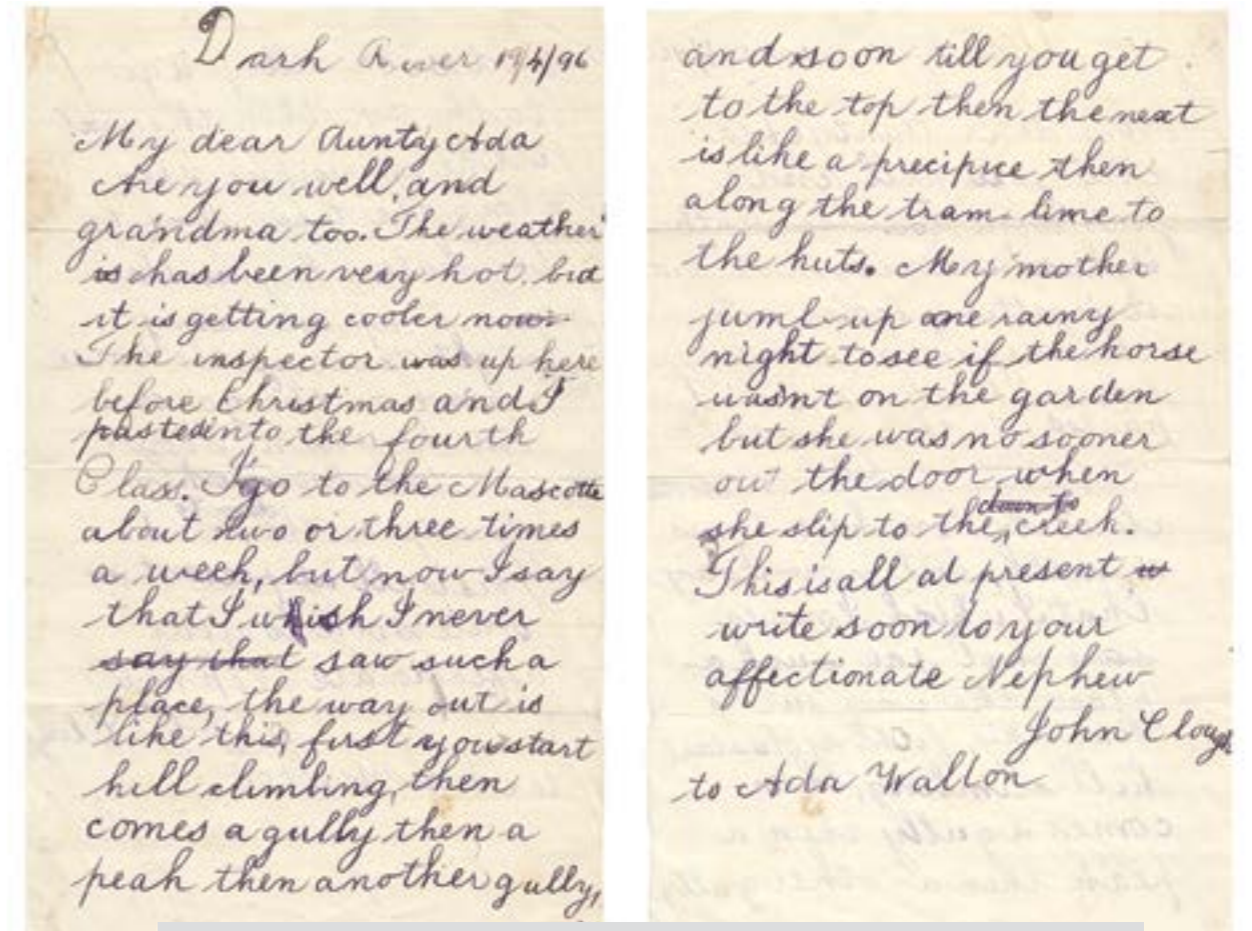 Dark River 19/4/96
My dear Aunty Ada
Are you well, and
grandma too. The weather
is has been very hot. but
it is getting cooler now.
The inspector was up here
before Christmas and I
pasted into the fourth
Class. I go to the Mascotte
about two or three times
a week, but now I say
that I whish I never
say that saw such a
place, the way out is
like this, first you start
hill climbing, then
comes a gully then a
peak then another gully,
and soon till you get
to the top then the next
is like a precipice then
along the tram-lime to
the huts. My mother
juml-up one rainy
night to see if the horse
wasn't on the garden
but she was no sooner
out the door when
down to
she slip to the creek.
This is all at present w
write soon to your
affectionate Nephew
John Clough
to Ada Wallon